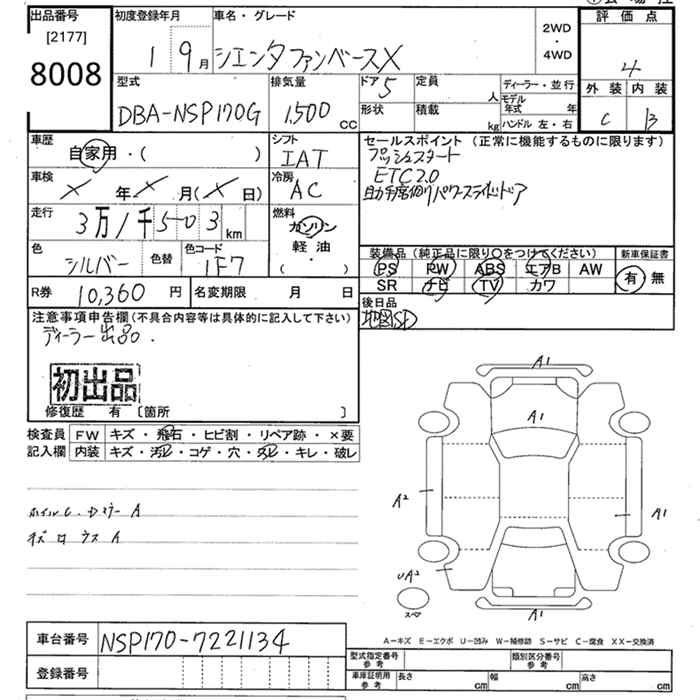 出品番号
[2177]
8008
初度登録年月
1 9月
車名・グレード
シエンタファンベースX
2WD
・
4WD
評価点
4
外装 内装
C B
型式
DBA-NSP170G
排気量
1,500 CC
ドア 5
定員 人
形状
積載 kg
ディーラー・並行
モデル年式 年
ハンドル 左・右
車歴
自家用・( )
シフト
IAT
セールスポイント (正常に機能するものに限ります)
プッシュスタート
ETC2.0
助手席側パワースライドドア
車検
× 年 × 月( × 日)
冷房
AC
走行
3万1千503km
燃料
ガソリン
軽油
( )
色
シルバー
色替
色コード
1F7
装備品 (純正品に限り○をつけてください)
PS PW ABS エアB AW
SR ナビ TV カワ
新車保証書
有 無
R券 10,360円
名変期限 月 日
後日品
地図SD
注意事項申告欄(不具合内容等は具体的に記入して下さい)
ディーラー出品.
初出品
修復歴 有 [箇所 ]
検査員 FW キズ・飛石・ヒビ割・リペア跡・×要
記入欄 内装 キズ・汚レ・コゲ・穴・スレ・キレ・破レ
ホイルC.Dミラー A
A1
A1
A2
A1
UA2
A1
スペア
A-キズ E-エクボ U-凹み W-補修跡 S-サビ C-腐食 XX-交換済
車台番号 NSP170-7221134
登録番号
型式指定番号 参考
類別区分番号 参考
車庫証明用 参考 長さ cm 幅 cm 高さ cm